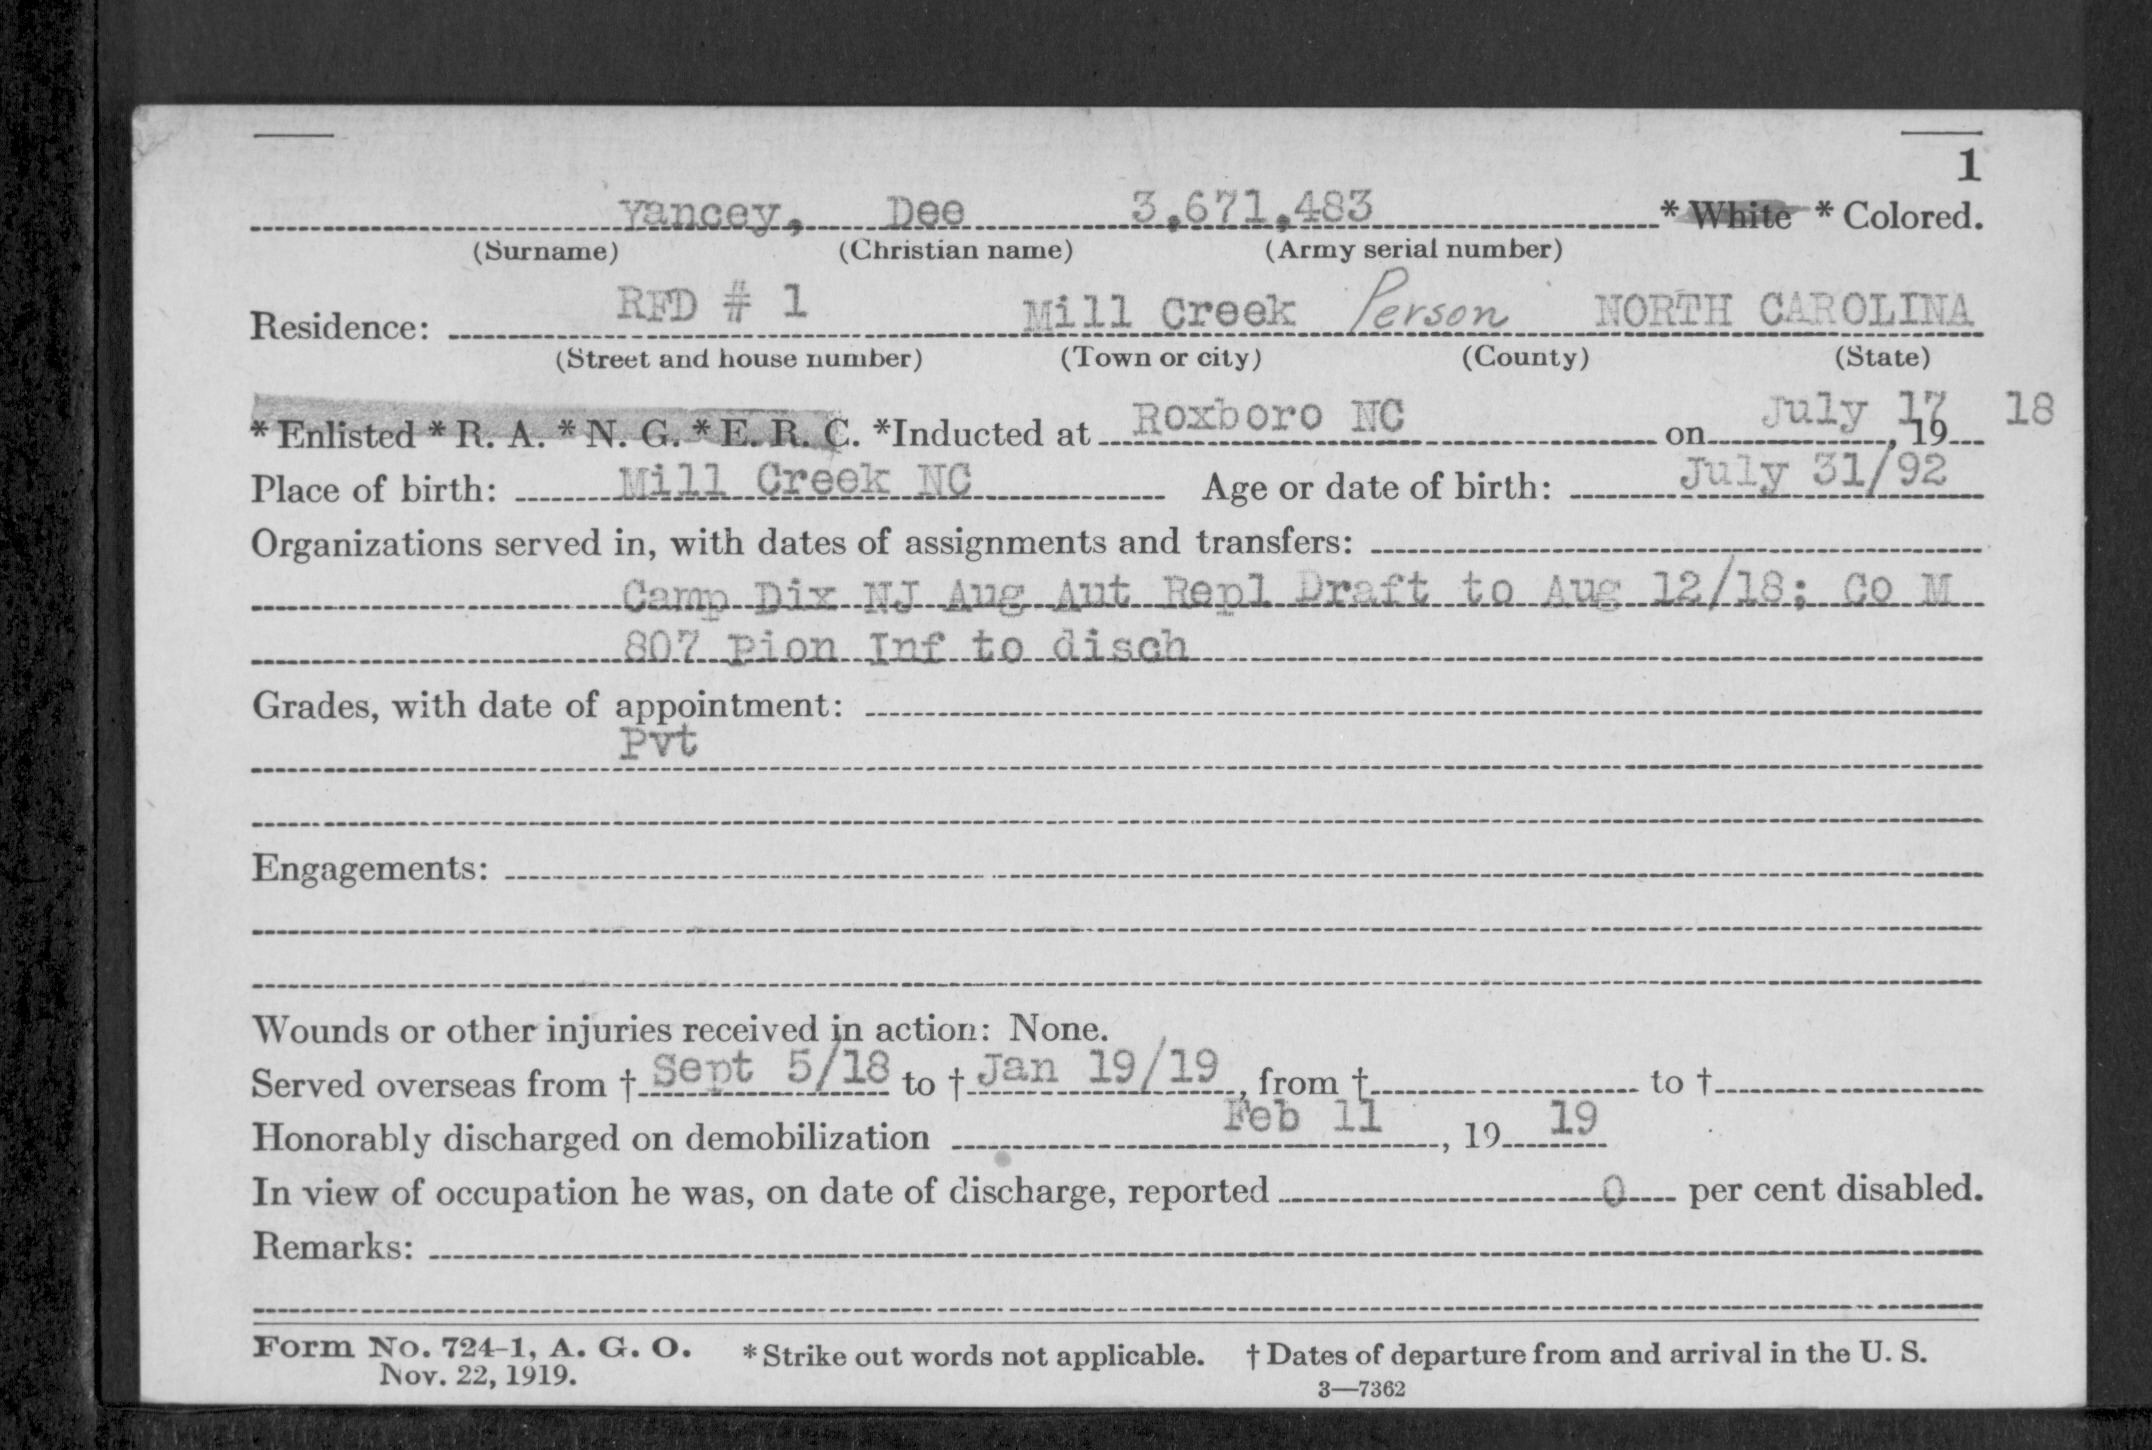 1
Yancey, Dee 3,671,483 * White * Colored.
(Surname) (Christian name) (Army serial number)
Residence: RFD # 1 Mill Creek Person NORTH CAROLINA
(Street and house number) (Town or city) (County) (State)
* Enlisted * R. A. * N. G. * E. R. C. *Inducted at Roxboro NC on July 17, 19 18
Place of birth: Mill Creek NC Age or date of birth: July 31/92
Organizations served in, with dates of assignments and transfers:
Camp Dix NJ Aug Aut Repl Draft to Aug 12/18; Co M
807 Pion Inf to disch
Grades, with date of appointment:
Pvt
Engagements:
Wounds or other injuries received in action: None.
Served overseas from † Sept 5/18 to † Jan 19/19, from † to †
Honorably discharged on demobilization Feb 11, 19 19
In view of occupation he was, on date of discharge, reported 0 per cent disabled.
Remarks:
Form No. 724-1, A. G. O. * Strike out words not applicable. † Dates of departure from and arrival in the U. S.
Nov. 22, 1919. 3—7362